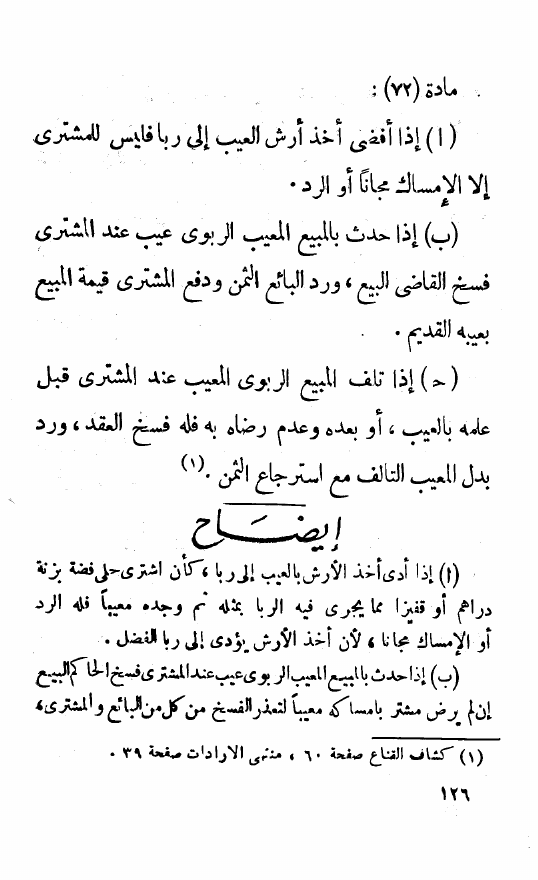 مادة (٧٢) :
(ا) إذا أفضى أخذ أرش العيب إلى ربا فليس للمشترى
إلا الإمساك مجاناً أو الرد .
(ب) إذا حدث بالمبيع المعيب الربوى عيب عند المشترى
فسخ القاضى البيع ، ورد البائع الثمن ودفع المشترى قيمة المبيع
بعيبه القديم .
(حـ) إذا تلف المبيع الربوى المعيب عند المشترى قبل
علمه بالعيب ، أو بعده وعدم رضاه به فله فسخ العقد ، ورد
بدل المعيب التالف مع استرجاع الثمن .(١)
إيضاح
(ا) إذا أدى أخذ الأرش بالعيب إلى ربا ، كأن اشترى حلى فضة بزنة
دراهم أو قفيزا مما يجرى فيه الربا بمثله ثم وجده معيباً فله الرد
أو الإمساك مجانا ، لأن أخذ الأرش يؤدى إلى ربا الفضل .
(ب) إذا حدث بالمبيع المعيب الربوى عيب عند المشترى فسخ الحاكم البيع
إن لم يرض مشتر بامساكه معيباً لتعذر الفسخ من كل من البائع والمشترى ،
(١) كشاف القناع صفحة ٦٠ ، منتهى الارادات صفحة ٣٩ .
١٢٦